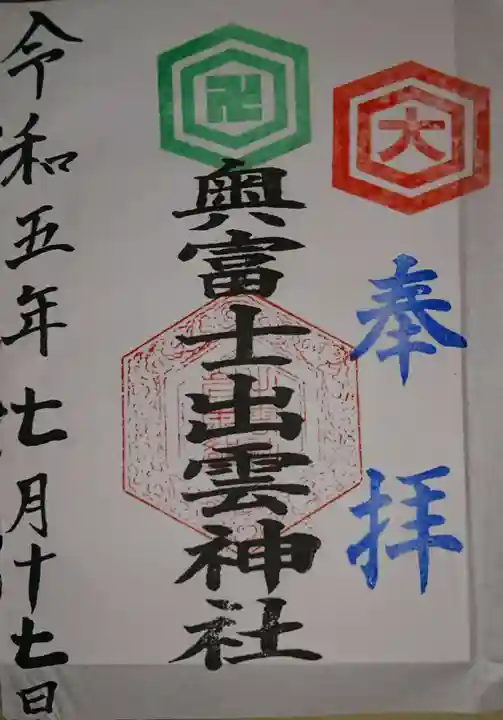 大
奉拝
卍
奥富士出雲神社
令和五年七月十七日